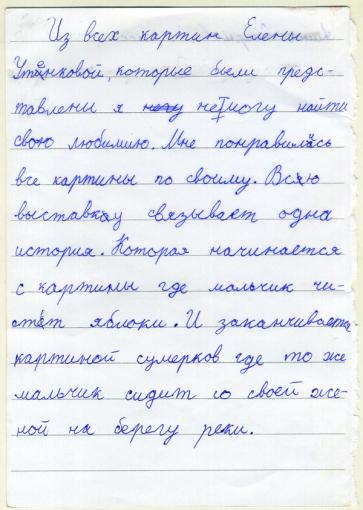 Из всех картин Елены
Утёнковой, которые были предс-
тавлены я немогу найти
свою любимию. Мне понравилась
все картины по своиму. Всю
выставку связывает одна
история. Которая начинается
с картины где мальчик чи-
стет яблоки. И заканчивается
картиной сумерков где то же
мальчик сидит со своей же-
ной на берегу реки.